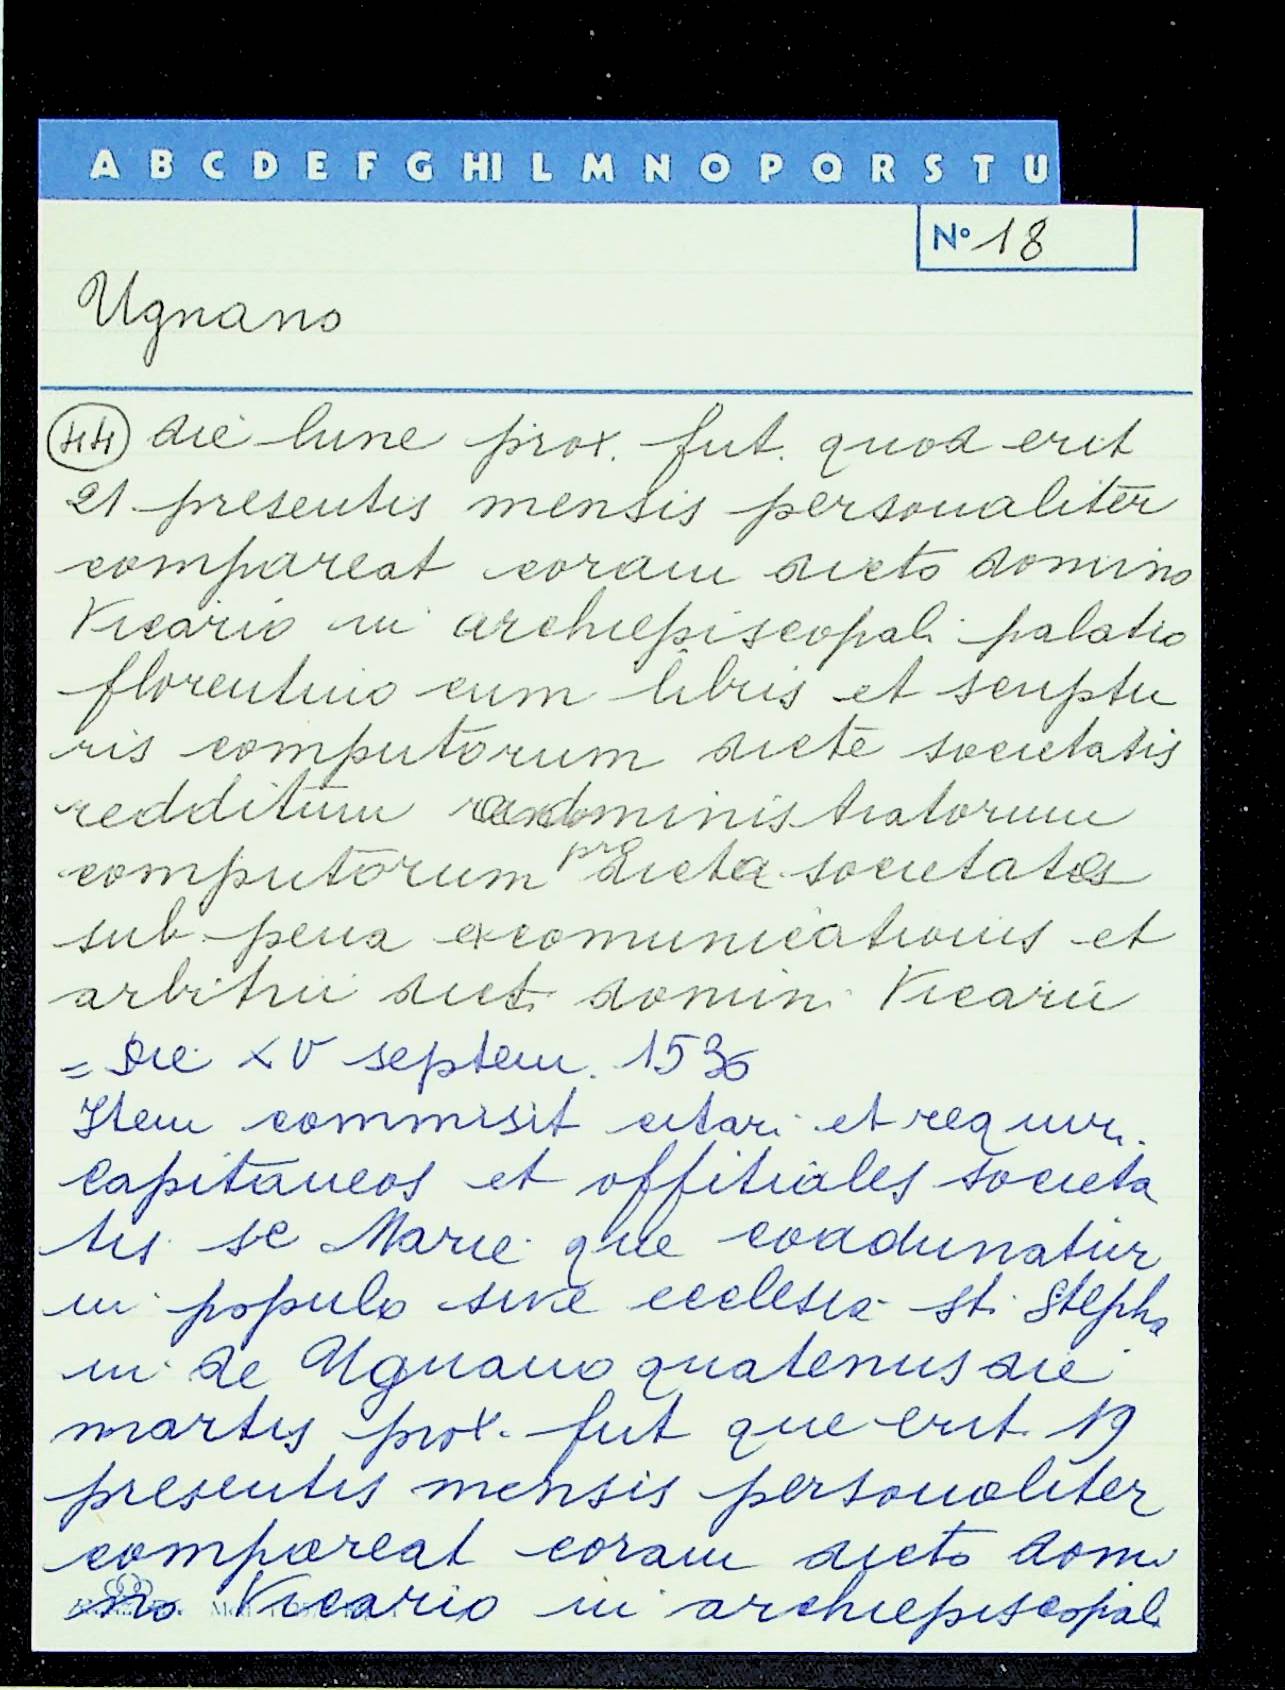 A B C D E F G HI L M N O P Q R S T U
N° 18
Ugnano
44 die lune prox. fut. quod erit
21 presentis mensis personaliter
compareat coram dicto domino
Vicario in archiepiscopali palatio
florentino cum libris et scriptu
ris computorum dicte societatis
redditum administratorum
computorum predicta societates
sub pena excomunicationis et
arbitrii dicti domini Vicarii
= Die XV septem. 1536
Item commisit citari et requiri
capitaneos et offitiales societa
tis Sc Marie que coadunatur
in populo sive ecclesia sti Stepha
ni de Ugnano quatenus die
martis prox. fut que erit 19
presentis mensis personaliter
compareat coram dicto domi
no Vicario in archiepiscopali